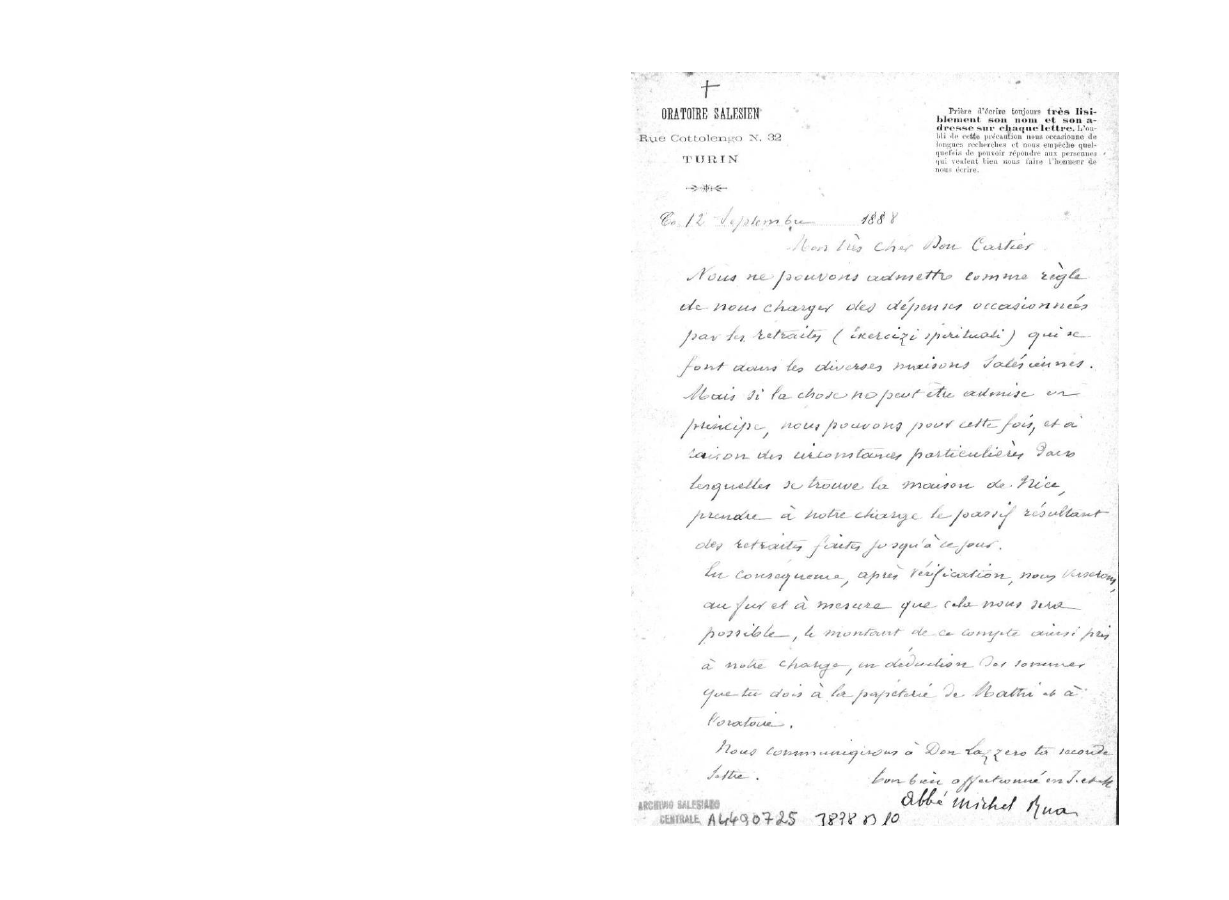 ORATOIRE SALESIEN
Rue Cottolengo N. 32
TURIN
Prière d'écrire toujours très lisi-
blement son nom et son a-
dresse sur chaque lettre. L'ou-
bli de cette précaution nous occasionne de
longues recherches et nous empêche quel-
quefois de pouvoir répondre aux personnes
qui veulent bien nous faire l'honneur de
nous écrire.
To. 12 Septembre 1888
Mon très cher Don Cartier
Nous ne pouvons admettre comme règle
de nous charger des dépenses occasionnées
par les retraites (esercizi spirituali) qui se
font dans les diverses maisons Salésiennes.
Mais si la chose ne peut être admise en
principe, nous pouvons pour cette fois, et à
raison des circonstances particulières dans
lesquelles se trouve la maison de Nice,
prendre à notre charge le passif résultant
des retraites faites jusqu'à ce jour.
En conséquence, après vérification, nous
au fur et à mesure que cela nous sera
possible, le montant de ce compte ainsi pris
à notre charge, en déduction des sommes
que tu dois à la papeterie de Mathi et à
l'oratoire.
Nous communiquons à Don Lazzero ta seconde
lettre.
ton bien affectionné en J. et M.
abbé Michel Rua
ARCHIVIO SALESIANO
CENTRALE A4490725 3898 D 10